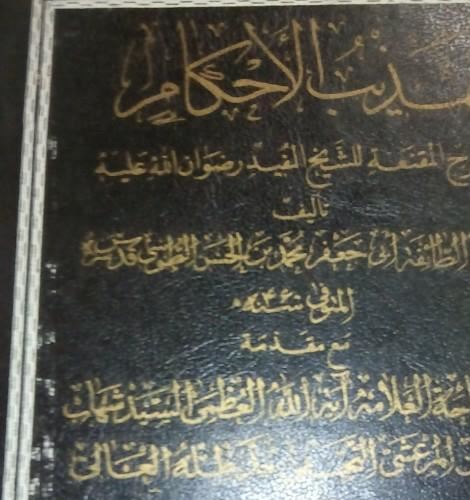 ـذيب الأحكام
ـرح المقنعة للشيخ المفيد رضوان الله علية
تأليف
الطائفة أبى جعفر محمد بن الحسن الطوسي قدس سره
المتوفى سنة ٤٦٠ه
مع مقدمة
ـاحة العلامة آية الله العظمى السيد شهاب
المرعشى النجفى مد ظله العالى